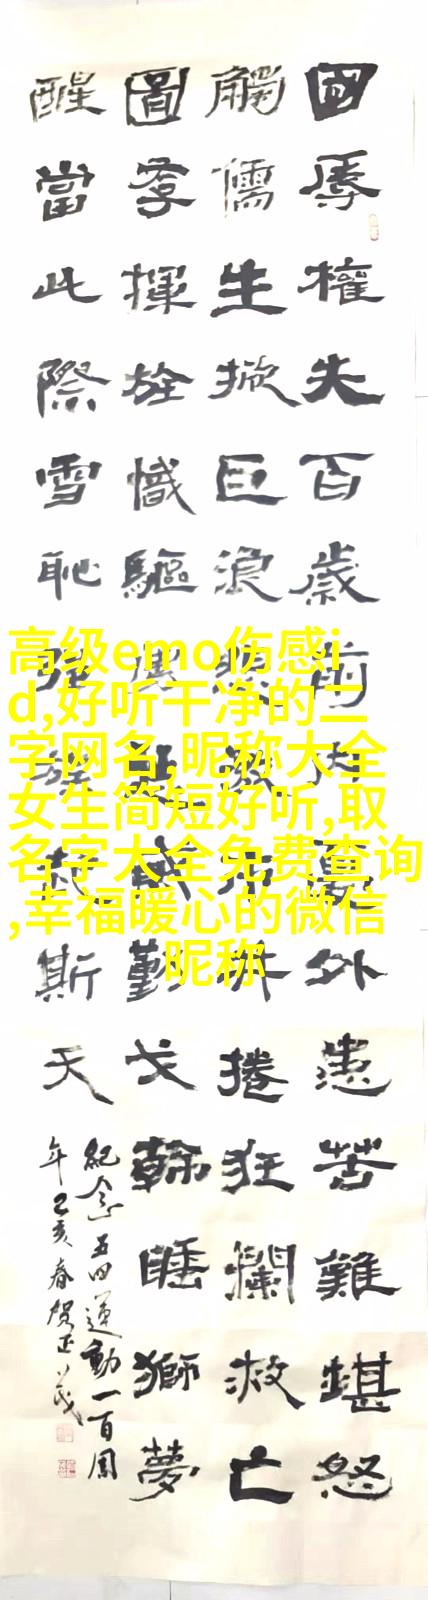 國辱權失百歲前內憂外患苦難堪怒
觸儒生掀巨浪激捲狂瀾救亡
圖存揮旌幟驅勤戈翰睡獅夢
醒當此際雪恥強族起斯天
紀念五四運動一百周
年己亥春賀正茂
高级emo伤感i
d,好听干净的二
字网名,昵称大全
女生简短好听,取
名字大全免费查询
,幸福暖心的微信
昵称